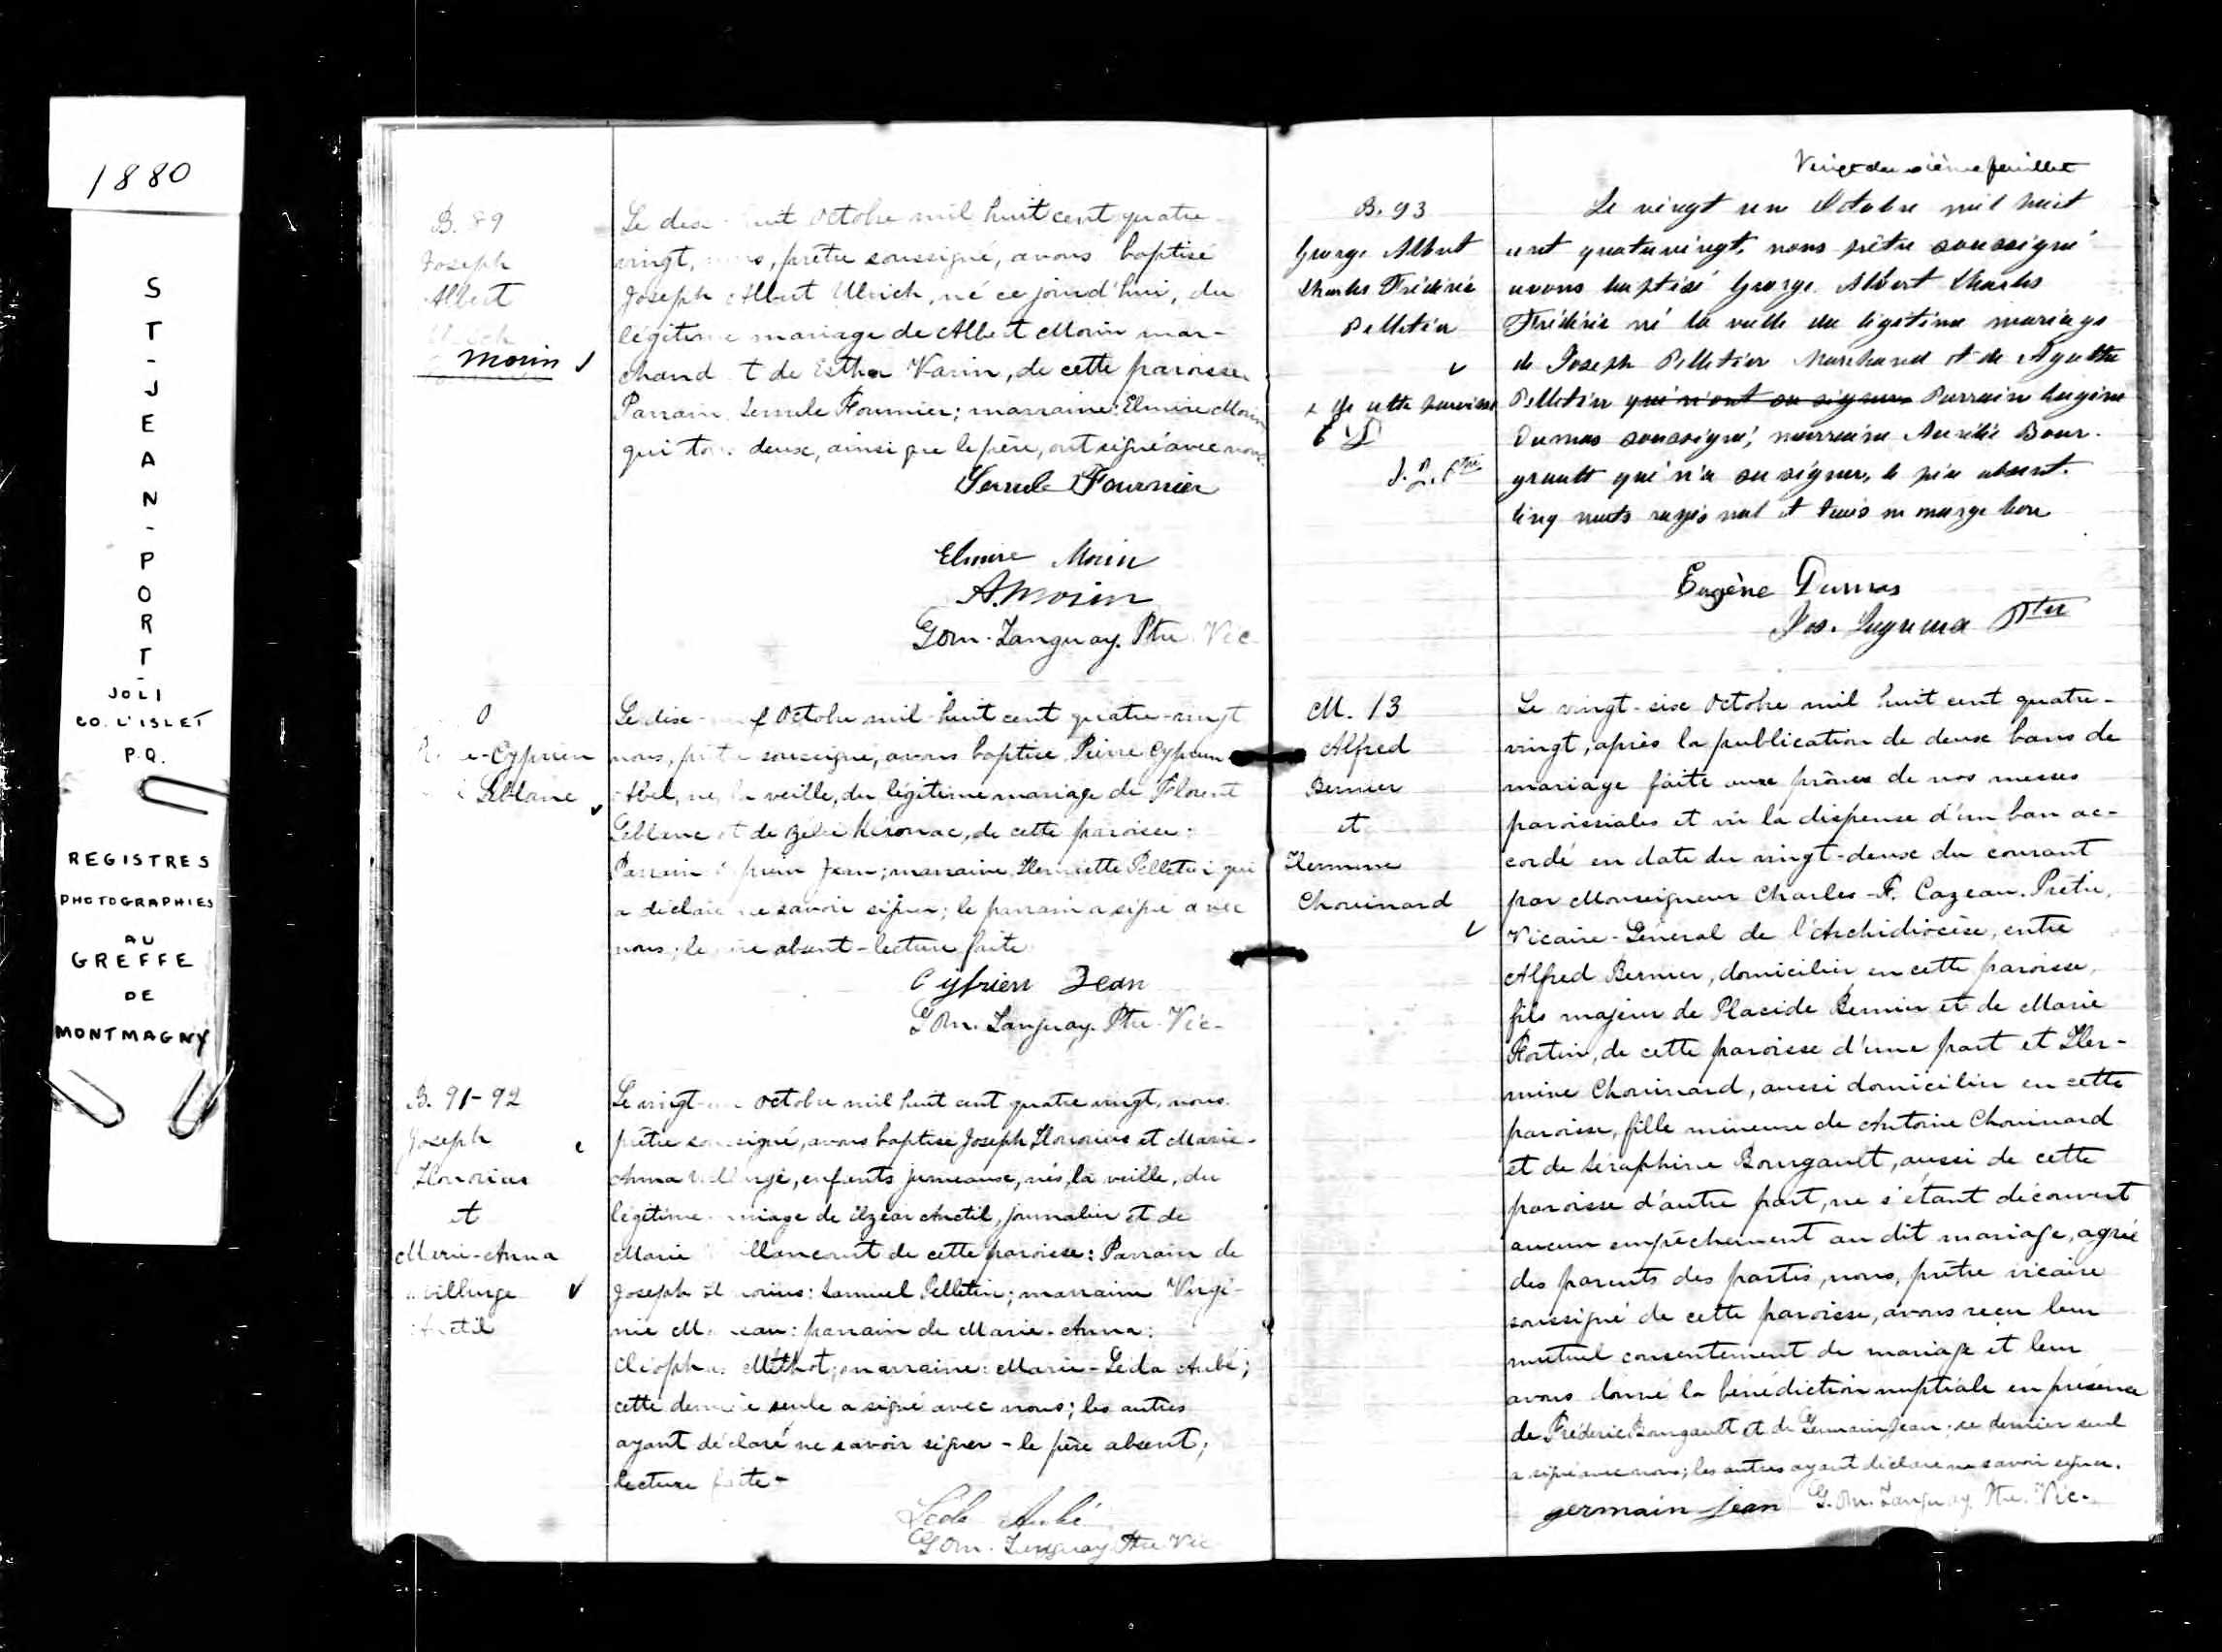 1880
ST-JEAN-PORT-
JOLI
CO. L'ISLET
P.Q.
REGISTRES
PHOTOGRAPHIES
AU
GREFFE
DE
MONTMAGNY
B. 89
Joseph
Albert
Morin
Le dix huit Octobre mil huit cent quatre-
vingt, prêtre soussigné, avons baptisé
Joseph Albert Ulrich, né ce jourd'hui, du
légitime mariage de Albert Morin mar-
chand et de Esther Varin, de cette paroisse
Parrain Servule Fournier; marraine: Elmire Morin
qui tous deux, ainsi que le père, ont signé avec nous.
Servule Fournier
Elmire Morin
A. Morin
G. M. Tanguay. Ptre Vic-
0
e-Cyprien
Leblanc
Le dix- Octobre mil-huit cent quatre-vingt
nous, prêtre soussigné, avons baptisé Pierre Cyprien
Abel, né, la veille, du légitime mariage de Florent
Leblanc et de Kérouac, de cette paroisse:
Parrain Jean; marraine, Henriette Pelletier qui
a déclaré ne savoir signer; le parrain a signé avec
nous; le absent-lecture faite
Cyprien Jean
G. M. Tanguay. Ptre. Vic-
B. 91-92
Joseph
Honorius
et
Marie-Anna
Anctil
Le vingt- octobre mil huit cent quatre vingt, nous
prêtre soussigné, avons baptisé Joseph Honorius et Marie-
Anna enfants jumeaux, nés, la veille, du
légitime mariage de Elzéar Anctil, journalier et de
Marie de cette paroisse: Parrain de
Joseph Honorius: Samuel Pelletier; marraine Virgi-
nie parrain de Marie-Anna:
Cléophas Méthot; marraine: Marie-Léda Aubé;
cette dernière seule a signé avec nous; les autres
ayant déclaré ne savoir signer - le père absent;
lecture faite-
Léda Aubé
G. M. Tanguay Ptre Vic
Vingt deuxième feuillet
B. 93
George Albert
Charles Frédéric
Pelletier
x de cette paroisse
Le vingt un Octobre mil huit
cent quatrevingt, nous prêtre soussigné
avons baptisé George Albert Charles
Frédéric né la veille du légitime mariage
de Joseph Pelletier Marchand et de Agathe
Pelletier qui n'ont su signer Parrain Eugène
Dumas soussigné, marraine Aurélie Bour-
grault qui n'a su signer, le père absent.
Cinq mots rayés nul et trois en marge bon
Eugène Dumas
Jos. Ptre
M. 13
Alfred
Bernier
et
Hermine
Chouinard
Le vingt-six Octobre mil huit cent quatre-
vingt, après la publication de deux bans de
mariage faite aux prônes de nos messes
paroissiales et vu la dispense d'un ban ac-
cordé en date du vingt-deux du courant
par Monseigneur Charles-F. Cazeau. Prêtre,
Vicaire-Général de l'Archidiocèse, entre
Alfred Bernier, domicilier en cette paroisse,
fils majeur de Placide Bernier et de Marie
Fortin, de cette paroisse d'une part et Her-
mine Chouinard, aussi domicilier en cette
paroisse, fille mineure de Antoine Chouinard
et de Séraphine Bourgault, aussi de cette
paroisse d'autre part, ne s'étant découvert
aucun empêchement au dit mariage, agrée
des parents des partis, nous, prêtre vicaire
soussigné de cette paroisse, avons reçu leur
mutuel consentement de mariage et leur
avons donné la bénédiction nuptiale en présence
de Fréderic Bourgault et de Germain Jean; ce dernier seul
a signé avec nous; les autres ayant déclaré ne savoir signer.
germain jean G. M. Tanguay Ptre. Vic-